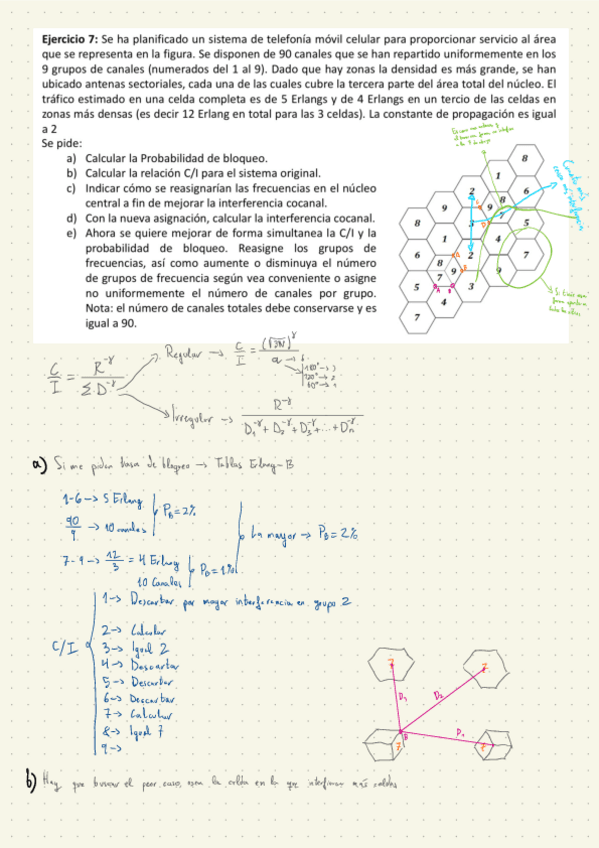 Ejercicio 7: Se ha planificado un sistema de telefonía móvil celular para proporcionar servicio al área
que se representa en la figura. Se disponen de 90 canales que se han repartido uniformemente en los
9 grupos de canales (numerados del 1 al 9). Dado que hay zonas la densidad es más grande, se han
ubicado antenas sectoriales, cada una de las cuales cubre la tercera parte del área total del núcleo. El
tráfico estimado en una celda completa es de 5 Erlangs y de 4 Erlangs en un tercio de las celdas en
zonas más densas (es decir 12 Erlang en total para las 3 celdas). La constante de propagación es igual
a 2
Se pide:
a) Calcular la Probabilidad de bloqueo.
b) Calcular la relación C/I para el sistema original.
c) Indicar cómo se reasignarían las frecuencias en el núcleo
central a fin de mejorar la interferencia cocanal.
d) Con la nueva asignación, calcular la interferencia cocanal.
e) Ahora se quiere mejorar de forma simultanea la C/I y la
probabilidad de bloqueo. Reasigne los grupos de
frecuencias, así como aumente o disminuya el número
de grupos de frecuencia según vea conveniente o asigne
no uniformemente el número de canales por grupo.
Nota: el número de canales totales debe conservarse y es
igual a 90.
8
1
2 6
9 9 8
8 3 7 5
1 4
6 2 7
8 9
5 7 9
3
4
7
C/I = R^-γ / Σ D^-γ
Regular → C/I = (√3N)^γ / a → 6
120° → 2
60° → 1
Irregular → R^-γ / D1^-γ + D2^-γ + D3^-γ + ... + Dn^-γ
a) Si me piden tasa de bloqueo → Tablas Erlang-B
1-6 → 5 Erlang
90/9 → 10 canales
PB = 2%
7-9 → 12/3 = 4 Erlang
10 Canales
PB = 1%
La mayor → PB = 2%
C/I
1 → Descartar por mayor interferencia en grupo 2
2 → Calcular
3 → Igual 2
4 → Descartar
5 → Descartar
6 → Descartar
7 → Calcular
8 → Igual 7
9 →
7 7
D1 D2
B
7 7
b) Hay que buscar el peor caso, sea la celda en la que interfieran más celdas